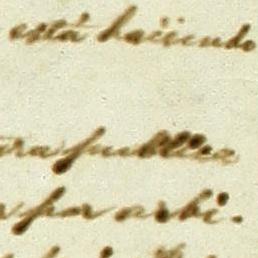 está haciendo
ra publica
por arbi-